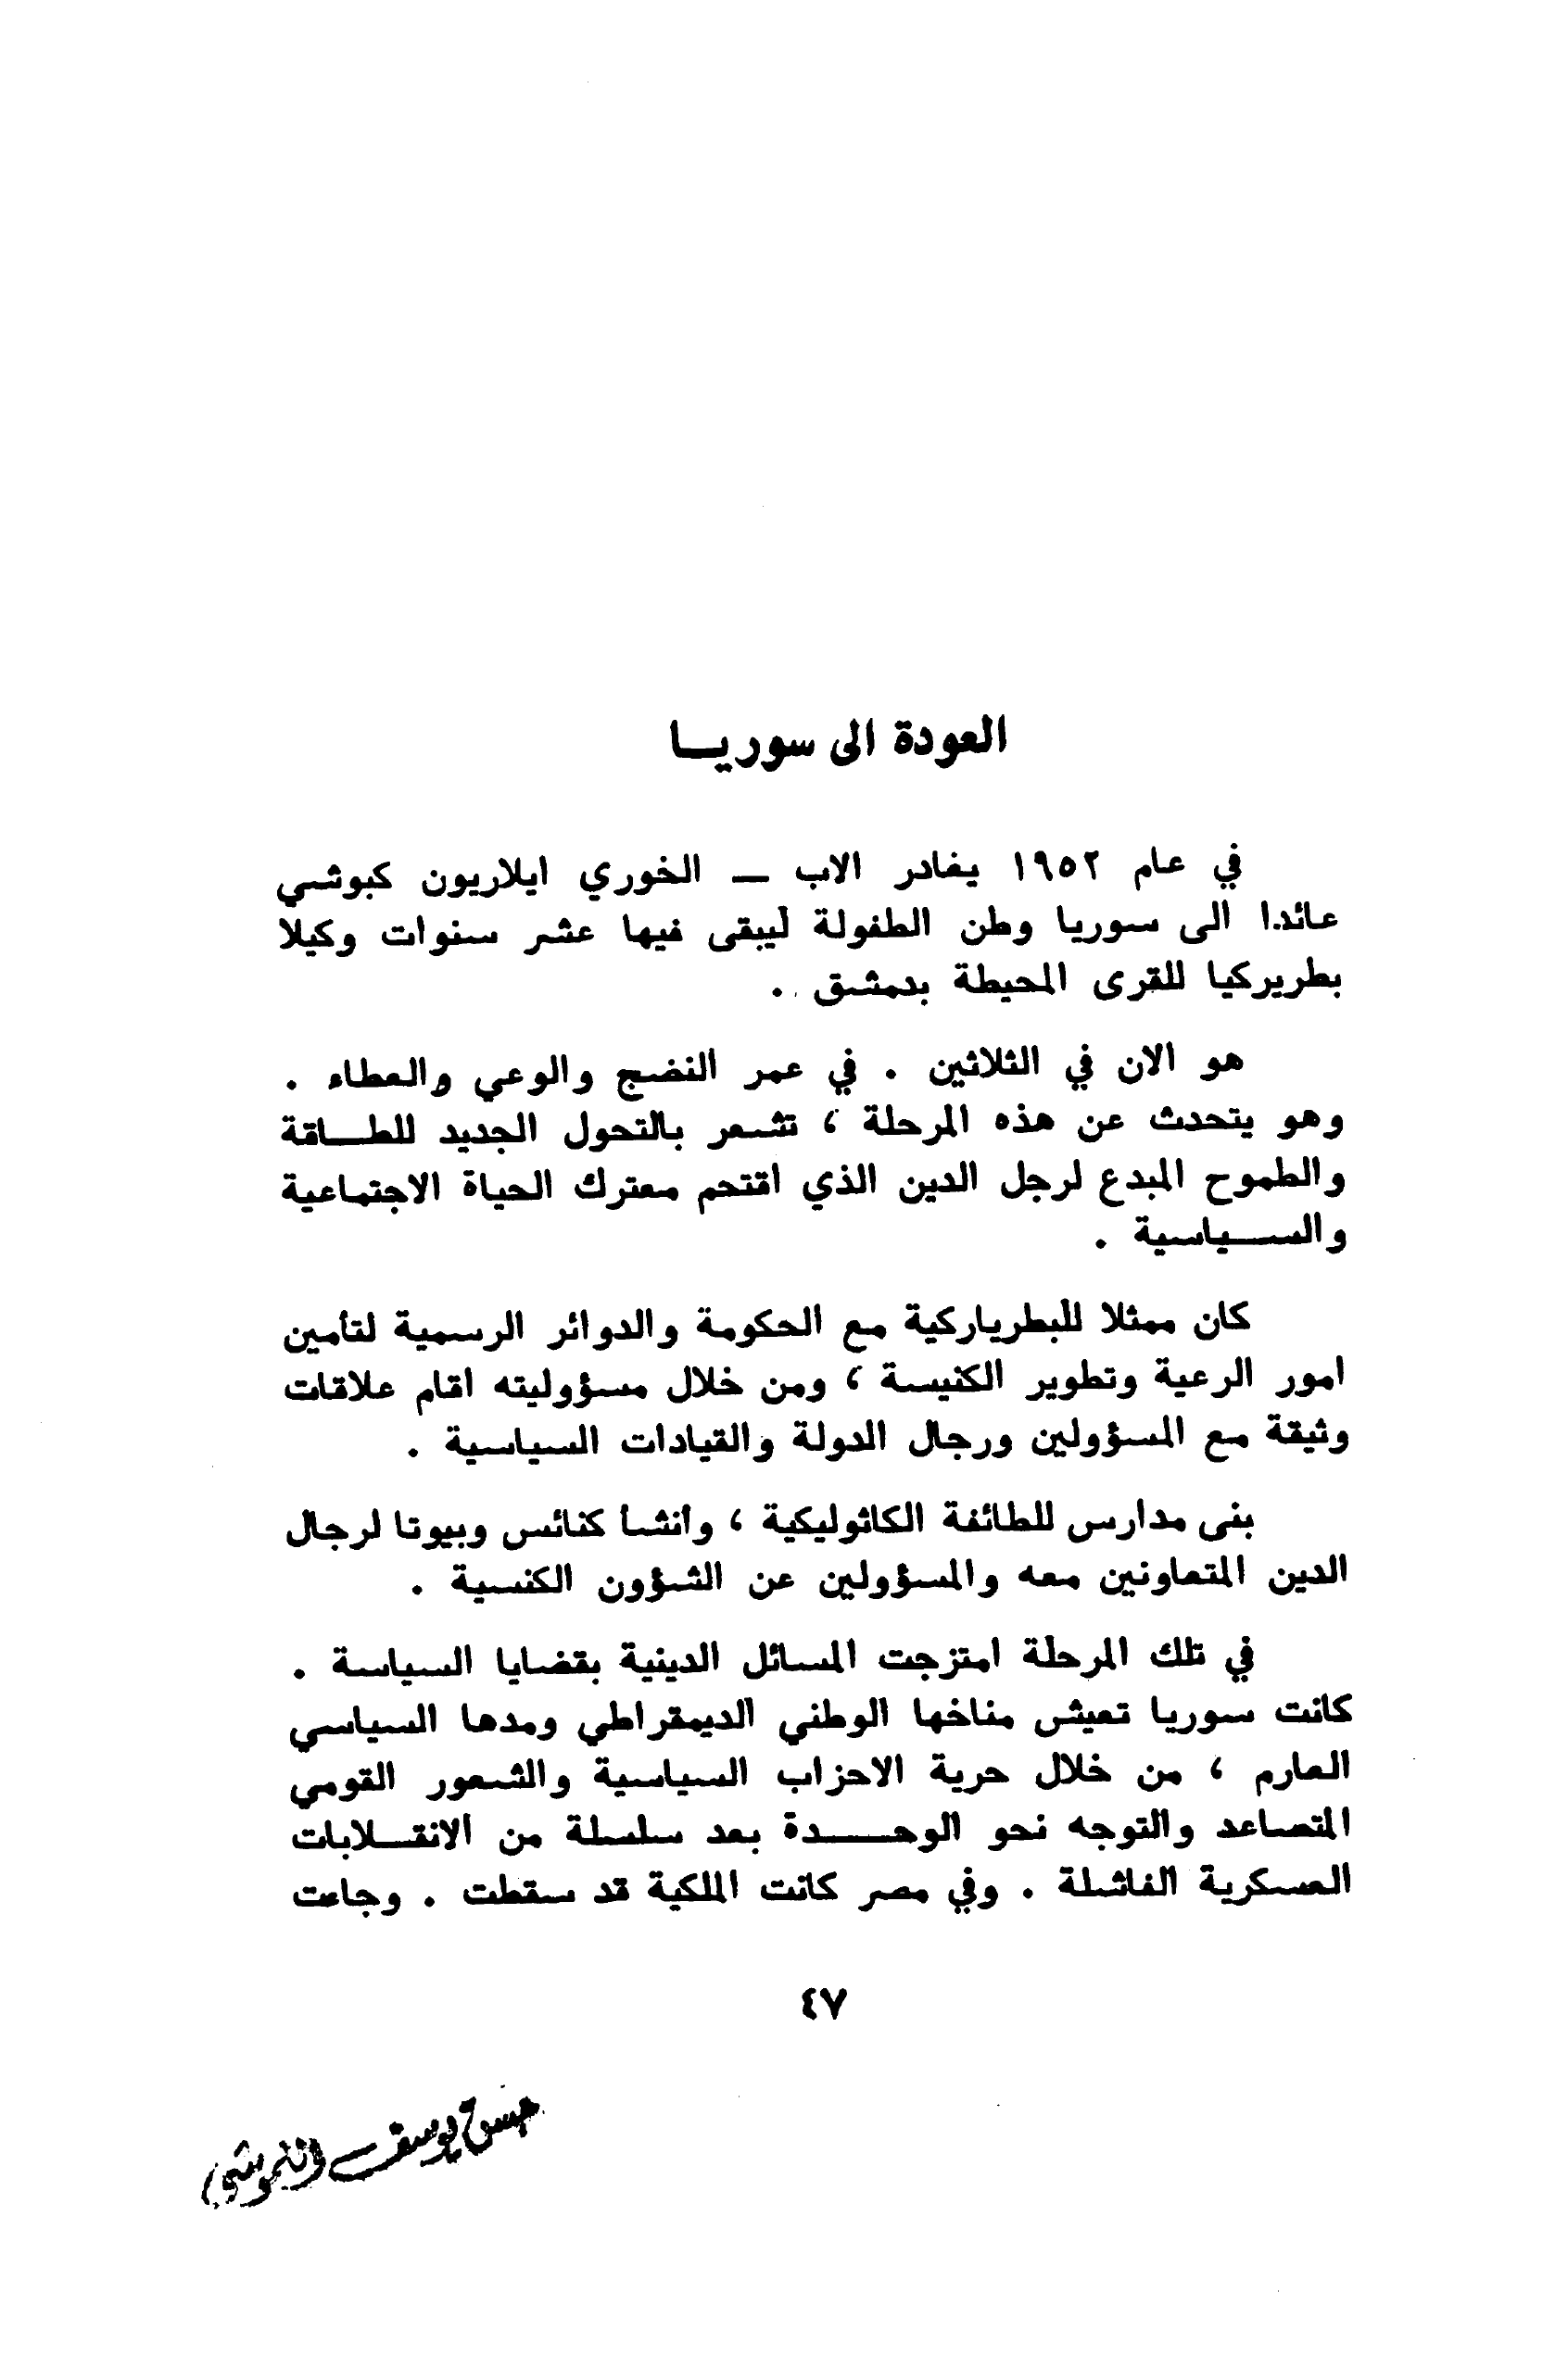 العودة الى سوريا
في عام ١٩٥٢ يغادر الاب — الخوري ايلاريون كبوشي
عائدا الى سوريا وطن الطفولة ليبقى فيها عشر سنوات وكيلا
بطريركيا للقرى المحيطة بدمشق .
هو الان في الثلاثين . في عمر النضج والوعي والعطاء .
وهو يتحدث عن هذه المرحلة ، تشعر بالتحول الجديد للطاقة
والطموح المبدع لرجل الدين الذي اقتحم معترك الحياة الاجتماعية
والسياسية .
كان ممثلا للبطرياركية مع الحكومة والدوائر الرسمية لتأمين
امور الرعية وتطوير الكنيسة ، ومن خلال مسؤوليته اقام علاقات
وثيقة مع المسؤولين ورجال الدولة والقيادات السياسية .
بنى مدارس للطائفة الكاثوليكية ، وأنشأ كنائس وبيوتا لرجال
الدين المتعاونين معه والمسؤولين عن الشؤون الكنسية .
في تلك المرحلة امتزجت المسائل الدينية بقضايا السياسة .
كانت سوريا تعيش مناخها الوطني الديمقراطي ومدها السياسي
العارم ، من خلال حرية الاحزاب السياسية والشعور القومي
المتصاعد والتوجه نحو الوحدة بعد سلسلة من الانقلابات
العسكرية الفاشلة . وفي مصر كانت الملكية قد سقطت . وجاءت
٤٧
يوسف